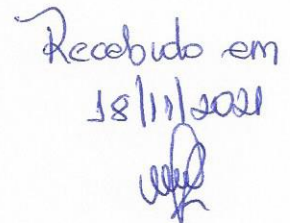 Recebido em
18/11/2021